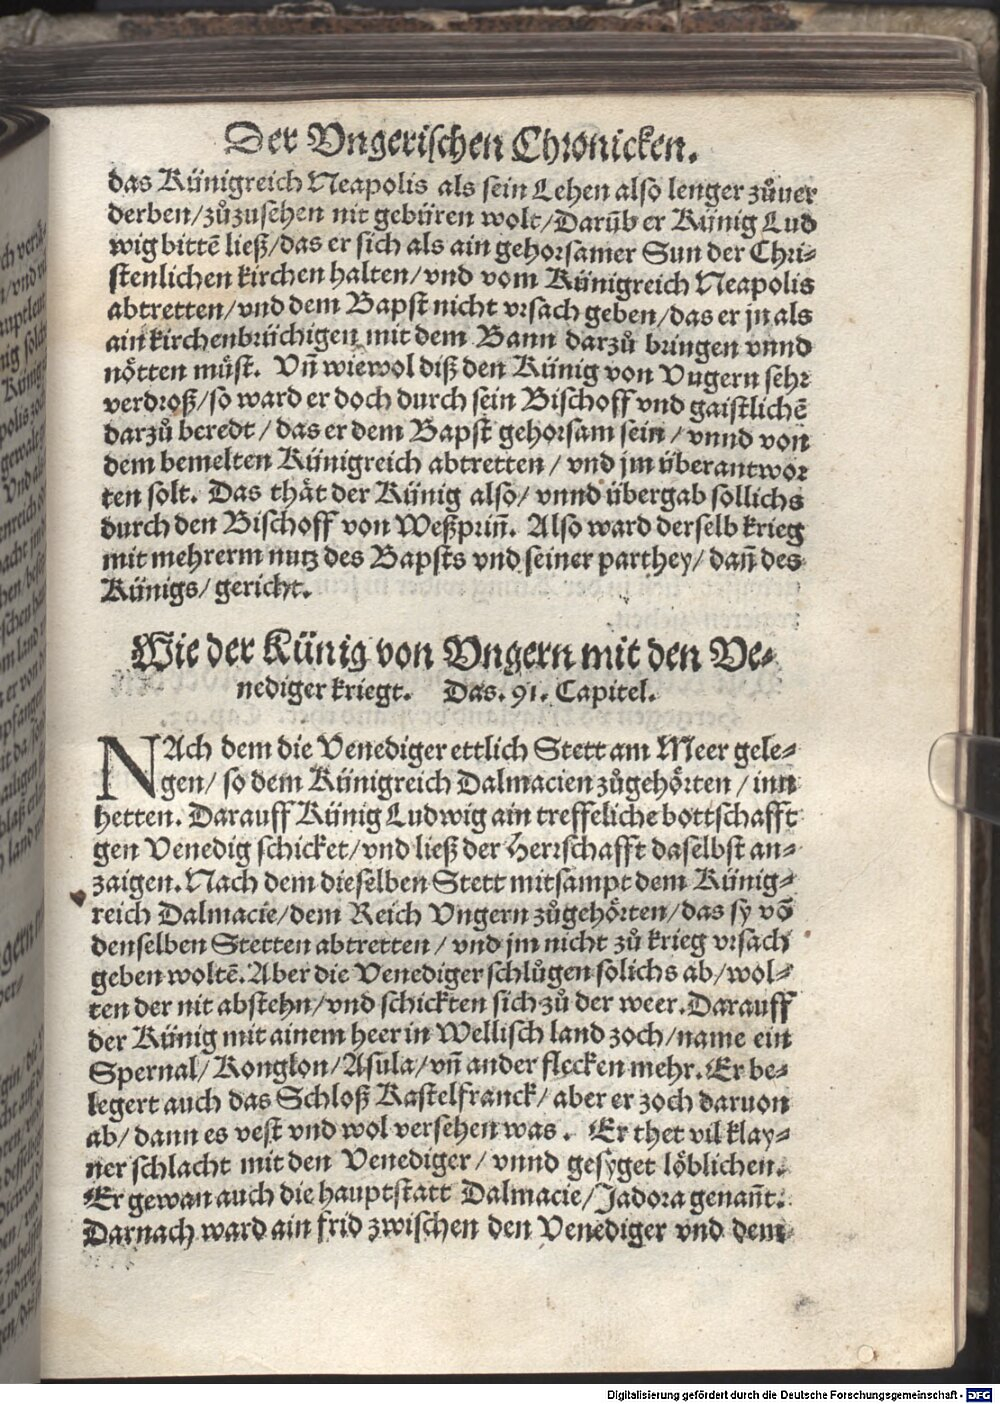 Der Vngerischen Chronicken.
das Künigreich Neapolis als sein Lehen also lenger zůuer
derben/zůzusehen nit gebüren wolt/Darüb er Künig Lud
wig bittē ließ/das er sich als ain gehorsamer Sun der Chri-
stenlichen kirchen halten/vnd vom Künigreich Neapolis
abtretten/vnd dem Bapst nicht vrsach geben/das er jn als
ain kirchenbrüchigen mit dem Bann darzů bringen vnnd
nötten müst. Vn̄ wiewol diß den Künig von Vngern sehr
verdroß/so ward er doch durch sein Bischoff vnd gaistlichē
darzů beredt/das er dem Bapst gehorsam sein/vnnd von
dem bemelten Künigreich abtretten/vnd jm überantwor
ten solt. Das thät der Künig also/vnnd übergab sollichs
durch den Bischoff von Weßprin̄. Also ward derselb krieg
mit mehrerm nutz des Bapsts vnd seiner parthey/dan̄ des
Künigs/gericht.
Wie der Künig von Vngern mit den Ve-
nediger kriegt. Das. 91. Capitel.
NAch dem die Venediger ettlich Stett am Meer gele-
gen/so dem Künigreich Dalmacien zůgehörten/inn
hetten. Darauff Künig Ludwig ain treffeliche bottschafft
gen Venedig schicket/vnd ließ der Herrschafft daselbst an-
zaigen. Nach dem dieselben Stett mitsampt dem Künig-
reich Dalmacie/dem Reich Vngern zůgehörten/das sy vō
denselben Stetten abtretten/vnd jm nicht zů krieg vrsach
geben woltē. Aber die Venediger schlůgen solichs ab/wol-
ten der nit abstehn/vnd schickten sich zů der weer. Darauff
der Künig mit ainem heer in Wellisch land zoch/name ein
Spernal/Konglon/Asula/vn̄ ander flecken mehr. Er be-
legert auch das Schloß Kastelfranck/aber er zoch daruon
ab/dann es vest vnd wol versehen was. Er thet vil klay-
ner schlacht mit den Venediger/vnnd gesyget löblichen.
Er gewan auch die hauptstatt Dalmacie/Jadora genan̄t.
Darnach ward ain frid zwischen den Venediger vnd dem
Digitalisierung gefördert durch die Deutsche Forschungsgemeinschaft - DFG